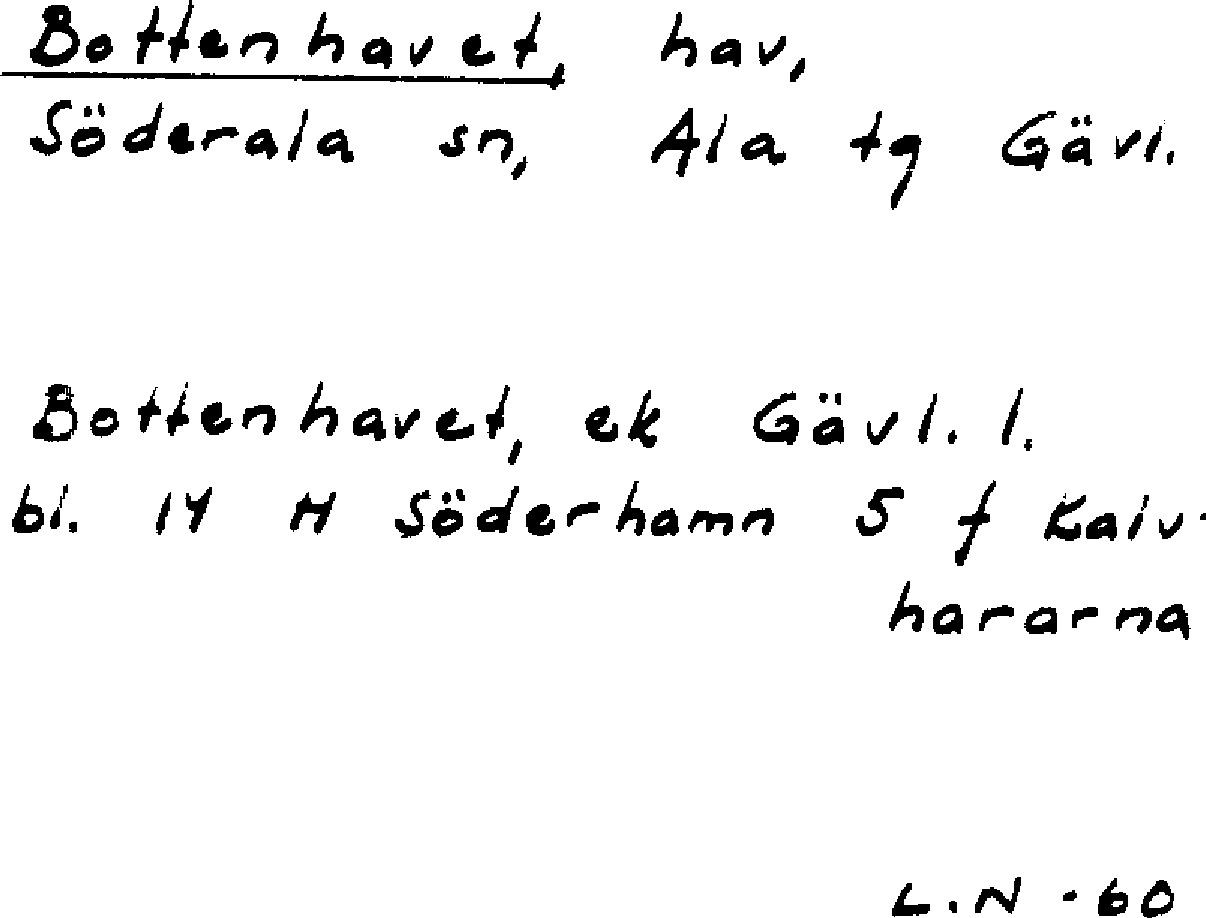 Bottenhavet, hav,
Söderala sn, Ala tg Gävl.
Bottenhavet, ek Gävl. l.
bl. 14 H Söderhamn 5 f Kalv-
hararna
L.N -60